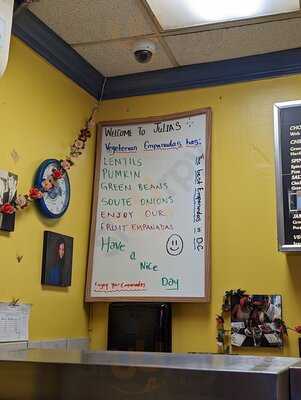 WELCOME TO JULIAS
Vegeterian Empanadas has:
LENTILS
PUMKIN
GREEN BEANS
SOUTE ONIONS
ENJOY OUR
FRUIT EMPANADAS
Have
a
Nice
Day
The best Empanadas in DC
Enjoy Your Empanadas